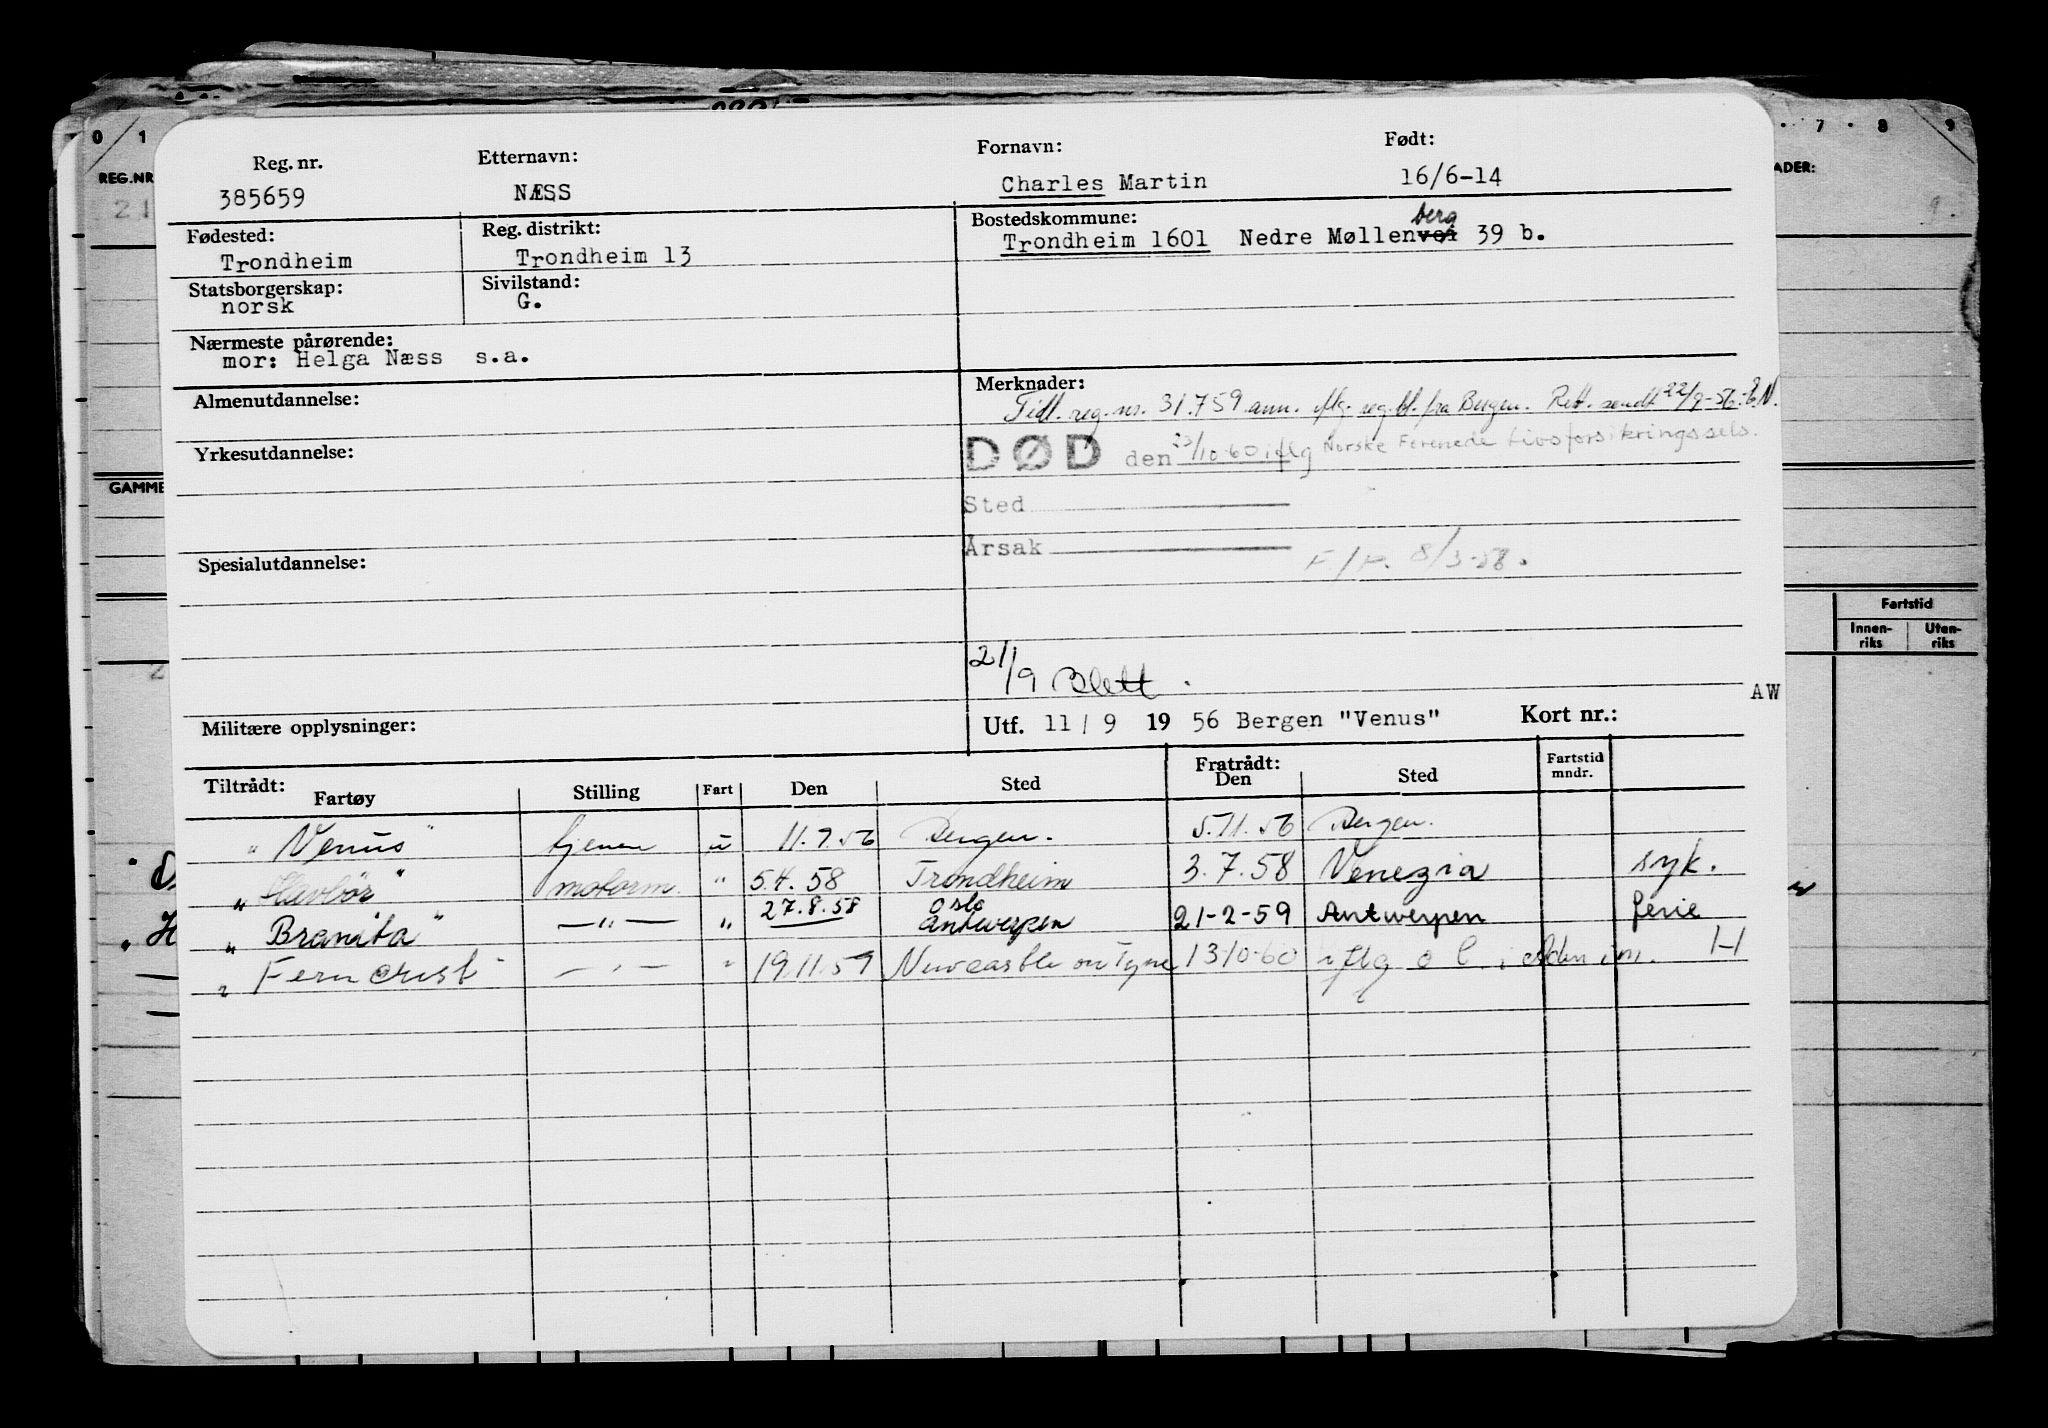 0 1
7 8 9
REG.NR
ADER:
21
Reg. nr. Etternavn: Fornavn: Født:
385659 NÆSS Charles Martin 16/6-14
Fødested: Reg. distrikt: Bostedskommune:
Trondheim Trondheim 13 Trondheim 1601 Nedre Møllenvei berg 39 b.
Statsborgerskap: Sivilstand:
norsk G.
Nærmeste pårørende:
mor: Helga Næss s.a.
Almenutdannelse: Merknader:
Tidl. reg. nr. 31.759 ann. iflg. reg.bl. fra Bergen. Rett. sendt 22/9-56.
Yrkesutdannelse:
DØD den 23/10-60 iflg Norske Forenede Livsforsikringssels.
GAMME
Sted
Årsak
8/3-58.
Spesialutdannelse:
Fartstid
Innen-riks Uten-riks
21/9 Blett.
AW
Militære opplysninger: Utf. 11/9 1956 Bergen "Venus" Kort nr.:
Tiltrådt: Fratrådt: Fartstid mndr.
Fartøy Stilling Fart Den Sted Den Sted
"Venus" u 11.9.56 Bergen. 5.11.56 Bergen.
"Havbör" motorm. " 5.4.58 Trondheim 3.7.58 Venezia syk.
"Branita" —"— " 27.8.58 Oslo Antwerpen 21-2-59 Antwerpen ferie
"Ferncrest" —"— " 19.11.59 Newcastle on Tyne 13-10-60 iflg